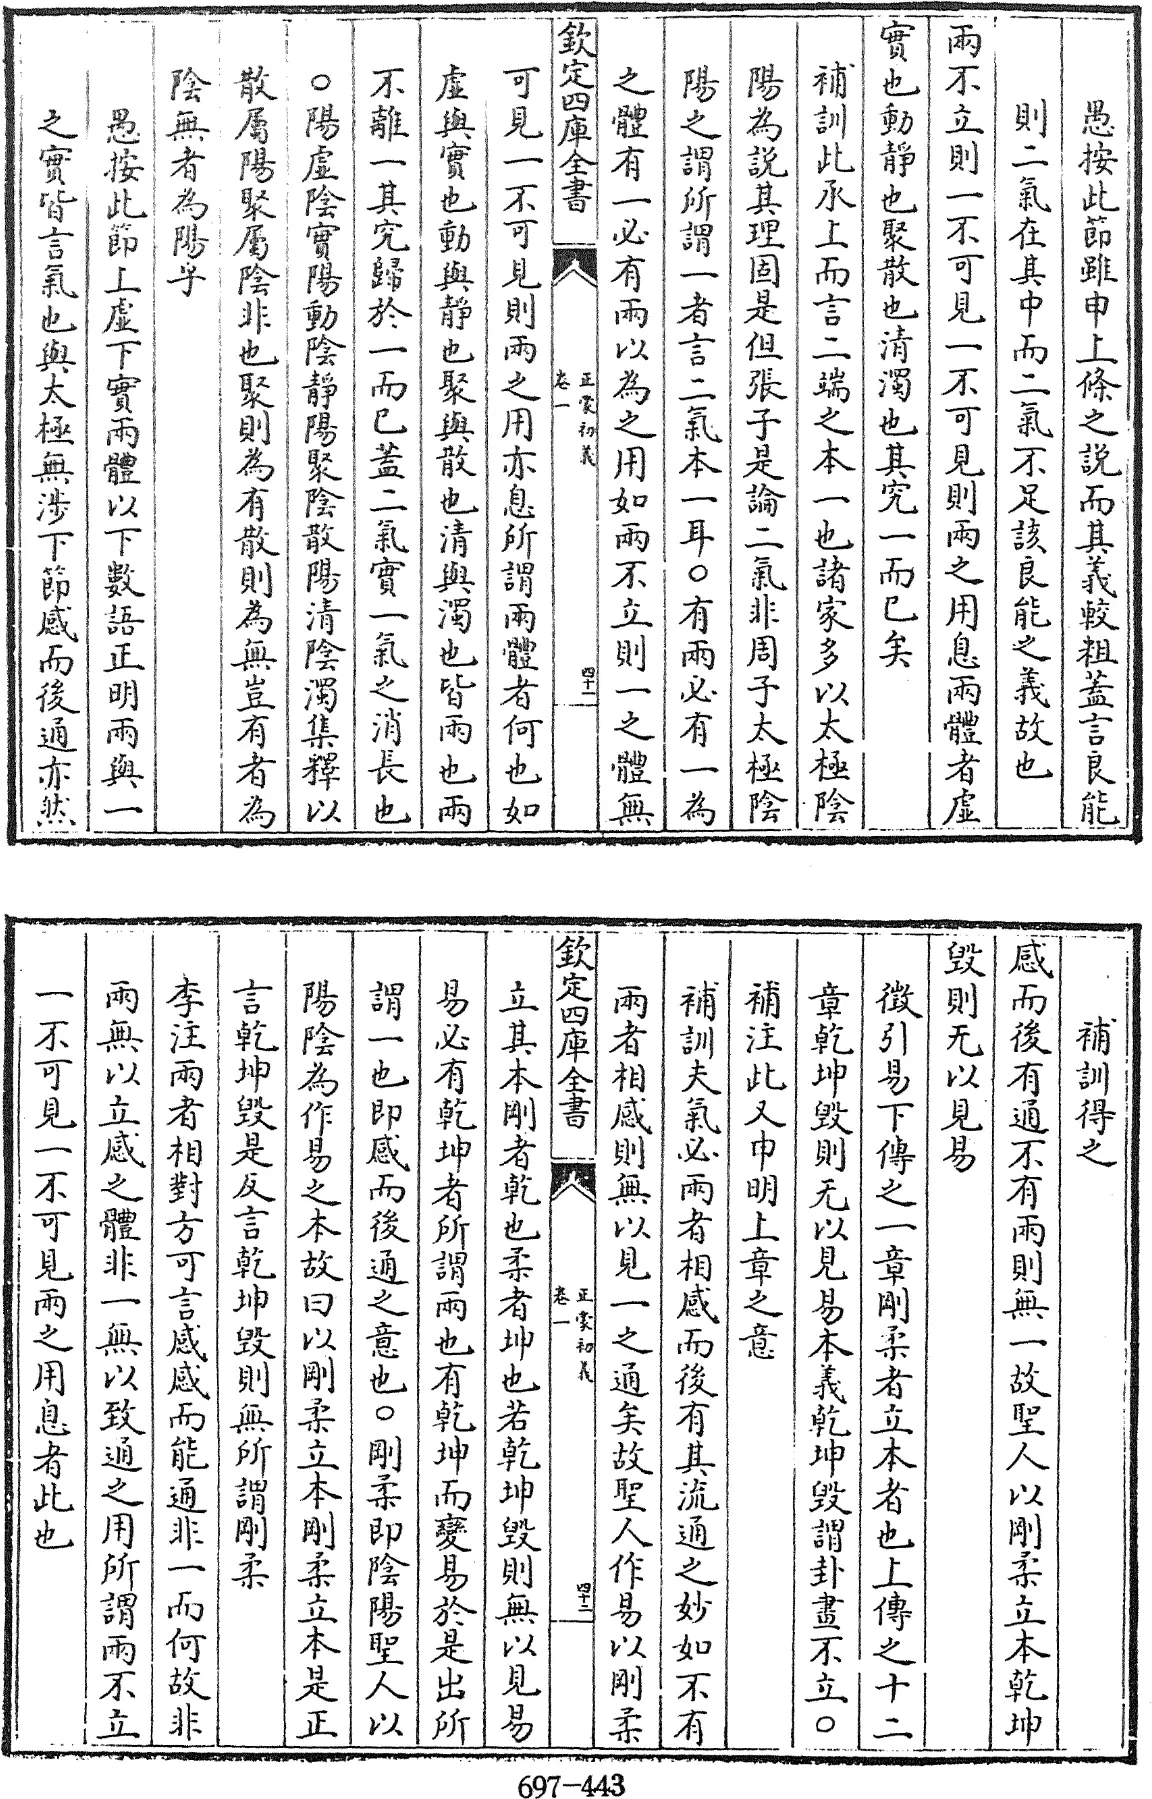 愚按此節雖申上條之說而其義較粗蓋言良能
則二氣在其中而二氣不足該良能之義故也
兩不立則一不可見一不可見則兩之用息兩體者虛
實也動靜也聚散也清濁也其究一而已矣
補訓此承上而言二端之本一也諸家多以太極陰
陽為說其理固是但張子是論二氣非周子太極陰
陽之謂所謂一者言二氣本一耳○有兩必有一為
之體有一必有兩以為之用如兩不立則一之體無
欽定四庫全書
正蒙初義
卷一
四十一
可見一不可見則兩之用亦息所謂兩體者何也如
虛與實也動與靜也聚與散也清與濁也皆兩也兩
不離一其究歸於一而已蓋二氣實一氣之消長也
○陽虛陰實陽動陰靜陽聚陰散陽清陰濁集釋以
散屬陽聚屬陰非也聚則為有散則為無豈有者為
陰無者為陽乎
愚按此節上虛下實兩體以下數語正明兩與一
之實皆言氣也與太極無涉下節感而後通亦然
補訓得之
感而後有通不有兩則無一故聖人以剛柔立本乾坤
毀則无以見易
徵引易下傳之一章剛柔者立本者也上傳之十二
章乾坤毀則无以見易本義乾坤毀謂卦畫不立○
補注此又申明上章之意
補訓夫氣必兩者相感而後有其流通之妙如不有
兩者相感則無以見一之通矣故聖人作易以剛柔
欽定四庫全書
正蒙初義
卷一
四十二
立其本剛者乾也柔者坤也若乾坤毀則無以見易
易必有乾坤者所謂兩也有乾坤而變易於是出所
謂一也即感而後通之意也○剛柔即陰陽聖人以
陽陰為作易之本故曰以剛柔立本剛柔立本是正
言乾坤毀是反言乾坤毀則無所謂剛柔
李注兩者相對方可言感感而能通非一而何故非
兩無以立感之體非一無以致通之用所謂兩不立
一不可見一不可見兩之用息者此也
697-443